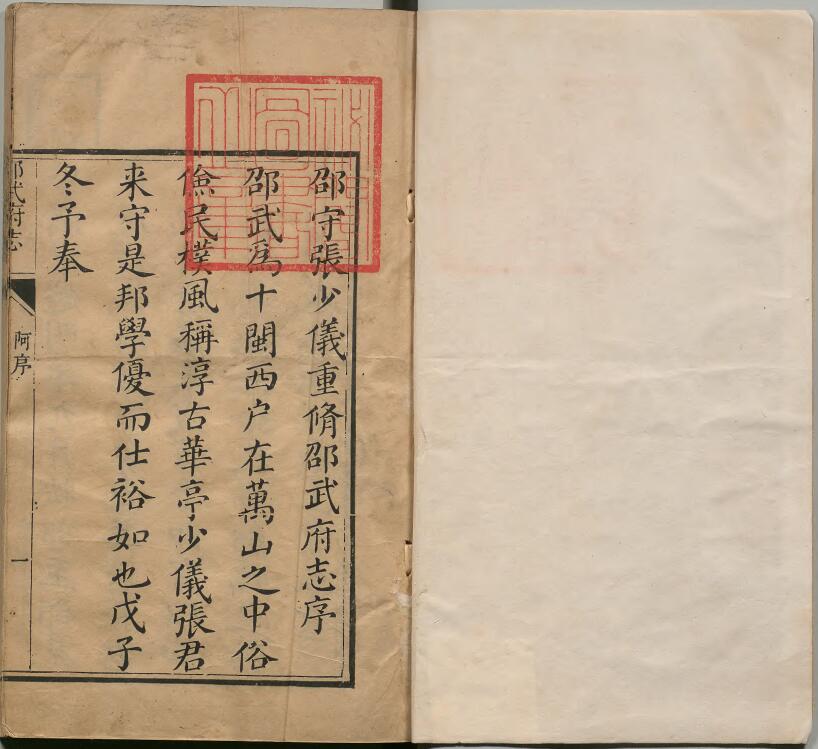 邵守張少儀重脩邵武府志序
邵武爲十閩西户在萬山之中俗
儉民樸風稱淳古華亭少儀張君
来守是邦學優而仕裕如也戊子
冬予奉
邵武府志
阿序
一